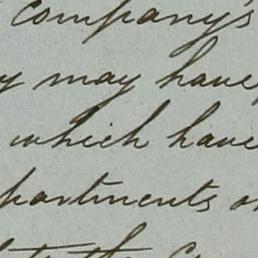 company's
y may have
which have
partments o
to the